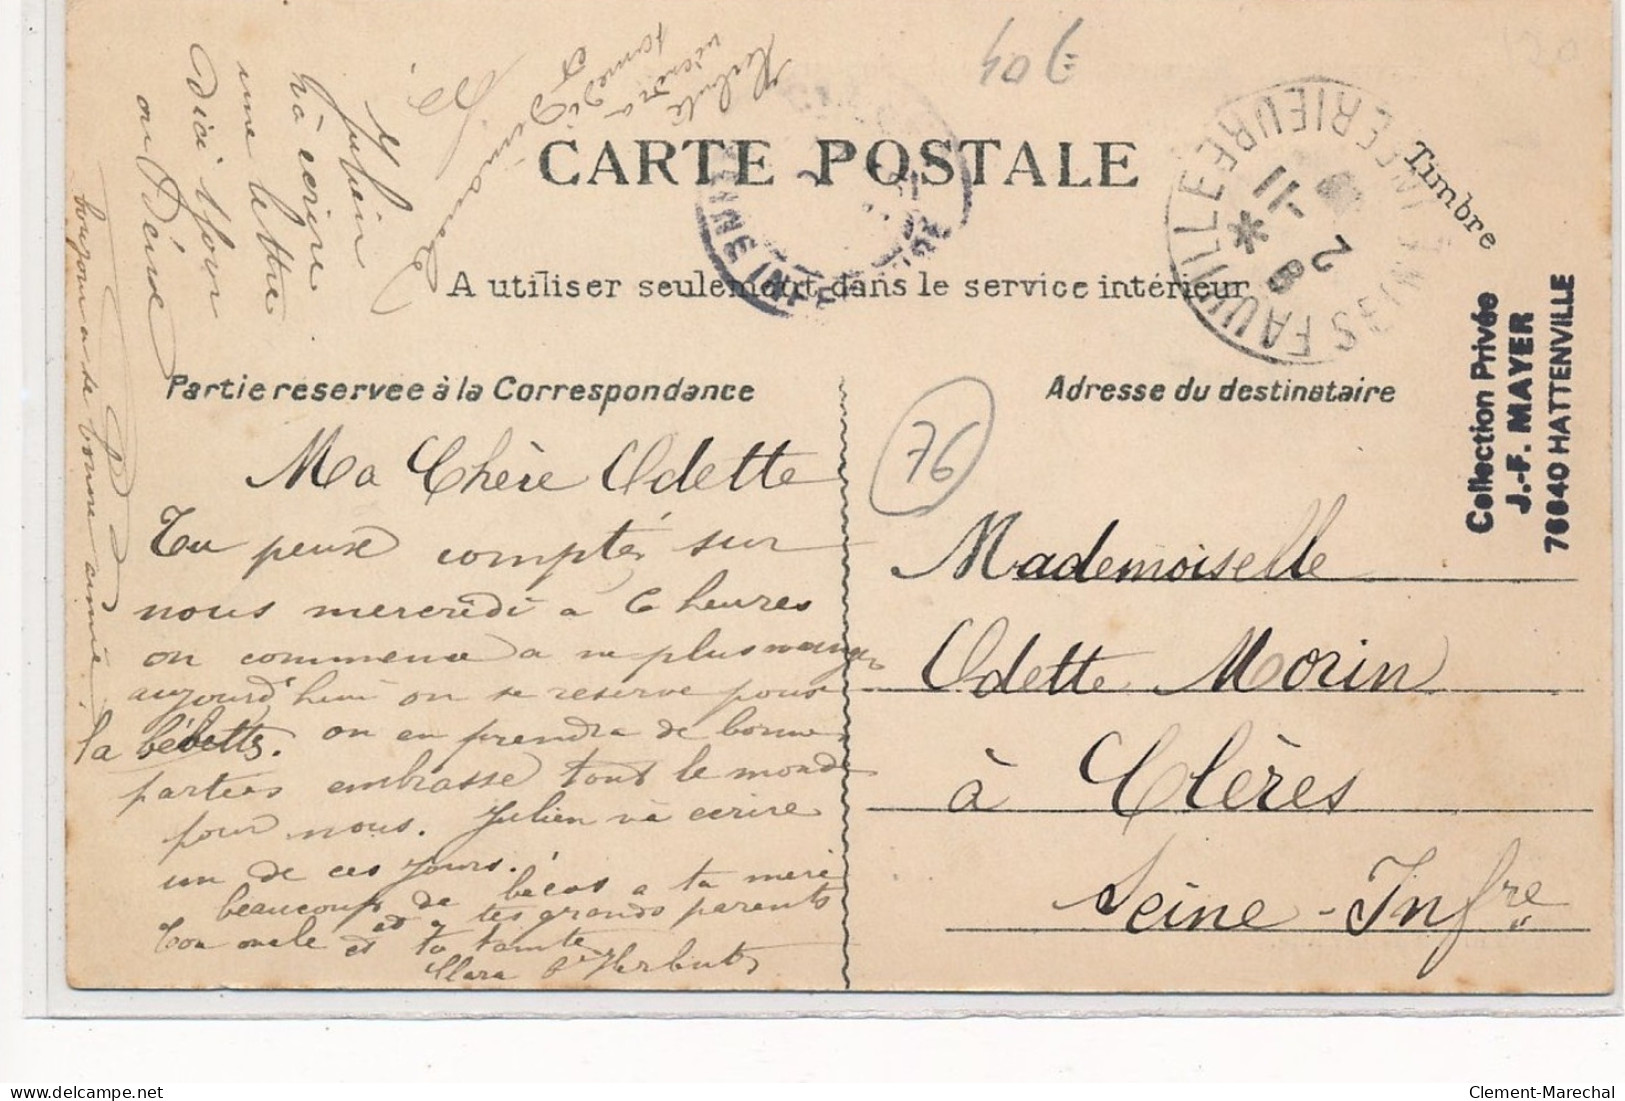 40 €
CARTE POSTALE
Timbre
A utiliser seulement dans le service intérieur
Partie reservee à la Correspondance
Adresse du destinataire
FAUVILLE
INFERIEURE
Collection Privée
J.-F. MAYER
76640 HATTENVILLE
76
Ma Chère Odette
Tu peux compter sur
nous mercredi a 6 heures
on commence a ne plus manger
aujourd'hui on se reserve pour
la bébette. on en prendra de bonnes
parties embrasse tout le monde
pour nous. Julien va ecrire
un de ces jours.
beaucoup de bécos a ta mere
et a tes grands parents
Ton oncle et ta tante
Clara Herbut
Mademoiselle
Odette Morin
à Clères
Seine-Infre
bonjour a sa bonne amie
ou Dénise
d'ici
une lettre
va ecrire
Julien
Simone
et